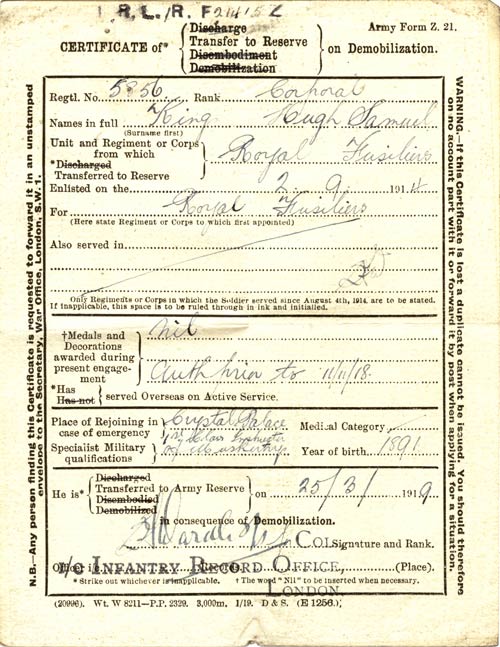 I.R.L./R.F 21415
Army Form Z. 21.
CERTIFICATE of*
Discharge
Transfer to Reserve
Disembodiment
Demobilization
on Demobilization.
Regtl. No. 5856 Rank Corporal
Names in full King Hugh Samuel
(Surname first)
Unit and Regiment or Corps
from which
*Discharged
Transferred to Reserve
Royal Fusiliers
Enlisted on the 2. 9. 1914.
For Royal Fusiliers
(Here state Regiment or Corps to which first appointed)
Also served in
Only Regiments or Corps in which the Soldier served since August 4th, 1914, are to be stated.
If inapplicable, this space is to be ruled through in ink and initialled.
†Medals and
Decorations
awarded during
present engage-
ment
nil
Auth prior to 11/11/18.
*Has
Has not
served Overseas on Active Service.
Place of Rejoining in
case of emergency
Crystal Palace
Medical Category
Specialist Military
qualifications
1st Class Instructor
of Musketry
Year of birth 1891
He is*
Discharged
Transferred to Army Reserve
Disembodied
Demobilized
on 25/3/1919
in consequence of Demobilization.
COL
Signature and Rank.
Officer i/c
(Place).
I/C INFANTRY RECORD OFFICE,
LONDON.
*Strike out whichever is inapplicable. †The word "Nil" to be inserted when necessary.
(20996). Wt. W 8211—P.P. 2329. 3,000m. 1/19. D & S. (E 1256.)
N.B.—Any person finding this Certificate is requested to forward it in an unstamped
envelope to the Secretary, War Office, London, S.W. 1.
WARNING.—If this Certificate is lost a duplicate cannot be issued. You should therefore
on no account part with it or forward it by post when applying for a situation.